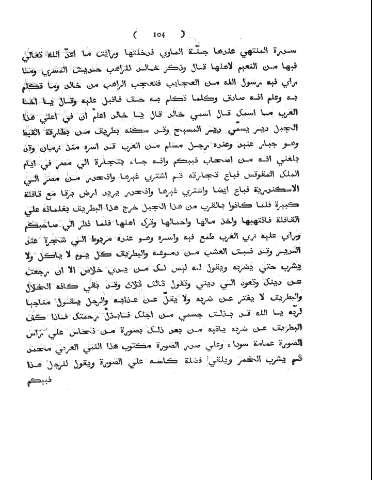 ( 104 )
سدرة المنتهي عندها جنّة الماوي فدخلتها ورايت ما اعدّ الله تعالي
فيها من النعيم لاهلها قال وذكر خالد للراهب حديث المسري وما
راي فيه رسول الله من العجايب فتعجب الراهب من خالد وما تكلم
به وعلم انه صادق وكلما تكلم به حقّ فاقبل عليه وقال يا اخا
العرب ما اسمك قال اسمي خالد قال يا خالد اعلم ان في اعلي هذا
الجبل دير يسمّي دير المسيح وقد سكنه بطريق من بطارقة القبط
وهو جبار عنيد وعنده رجل مسلم من العرب قد اسره منذ زمان وقد
بلغني انه من اصحاب نبيكم وانه جاء بتجارة الي مصر في ايام
الملك المقوقس فباع تجارته ثم اشتري غيرها وانحدر من مصر الي
الاسكندرية فباع ايضا واشتري غيرها وانحدر يريد ارض برقا مع قافلة
كبيرة فلما كانوا بالقرب من هذا الجبل خرج هذا البطريق بغلمانه علي
القافلة فانتهبها واخذ مالها واحمالها وترك اهلها فلما نظر الي صاحبكم
وراي عليه زي العرب طمع فيه واسره وهو عنده مربوط الي شجرة عند
الدير وقد نبت العشب من دموعه والبطريق كل يوم لا ياكل ولا
يشرب حتي يضربه ويقول له ليس لك من يدي خلاص الا ان رجعت
عن دينك وتعود الي ديني وتقول ثالث ثلاثة وقد بقي كانه الخلال
والبطريق لا يفتر عن ضربه ولا يقلّ عن عذابه والرجل يقول مناجيا
لربّه يا الله قد بذلت جسمي من اجلك فابذلّ رحمتك فاذا كفّ
البطريق عن ضربه ياتيه من بعد ذلك بصورة من نحاس علي راس
الصورة عمامة سوداء وعلي صدر الصورة مكتوب هذا النبي العربي محمد
ثم يشرب الخمر ويلقي فضلة كاسه علي الصورة ويقول للرجل هذا
نبيكم